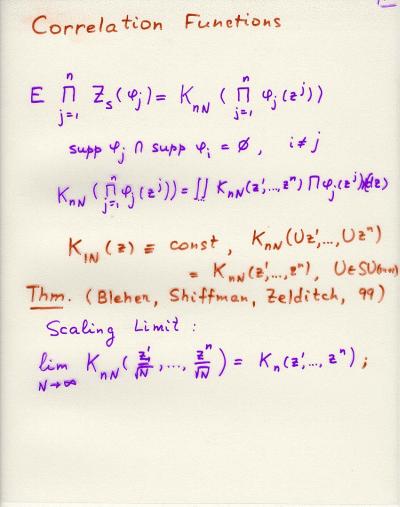 Correlation Functions
E ∏_{j=1}^{n} Z_s(φ_j) = K_{nN} ( ∏_{j=1}^{n} φ_j(z^j))
supp φ_j ∩ supp φ_i = ∅, i ≠ j
K_{nN} ( ∏_{j=1}^{n} φ_j(z^j)) = ∬ K_{nN}(z^1,...,z^n) ∏ φ_j(z^j)
K_{1N}(z) ≡ const, K_{nN}(Uz^1,...,Uz^n)
= K_{nN}(z^1,...,z^n), U∈SU(m+1)
Thm. (Bleher, Shiffman, Zelditch, 99)
Scaling Limit :
lim_{N→∞} K_{nN}(z^1/√N,...,z^n/√N) = K_n(z^1,...,z^n);